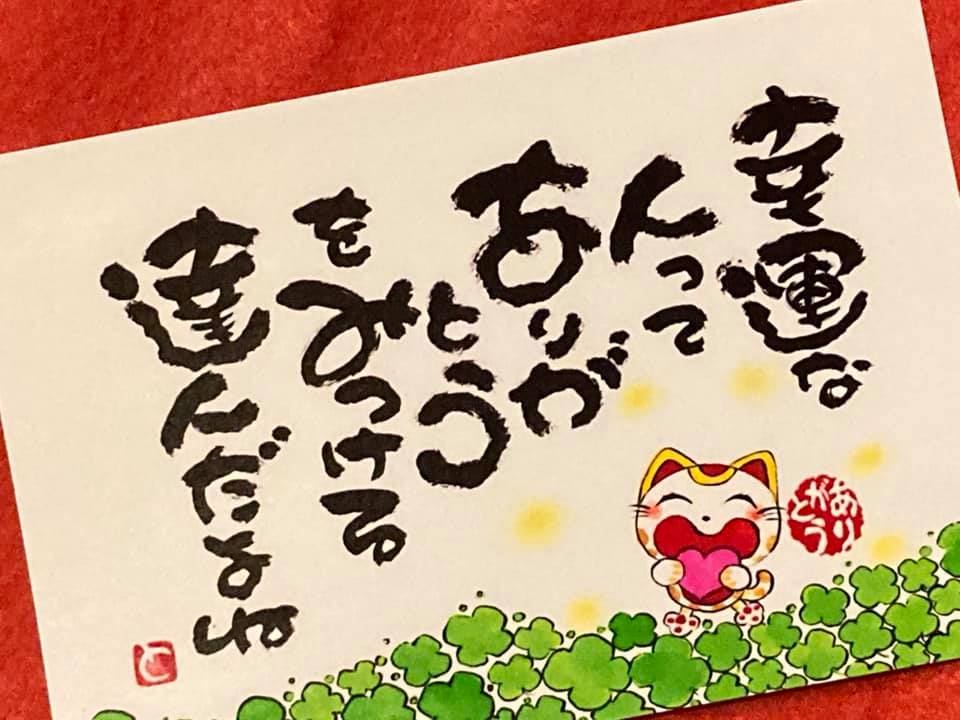 幸運な
人って
ありが
とう
を
みつける
達人だよね
ありがとう